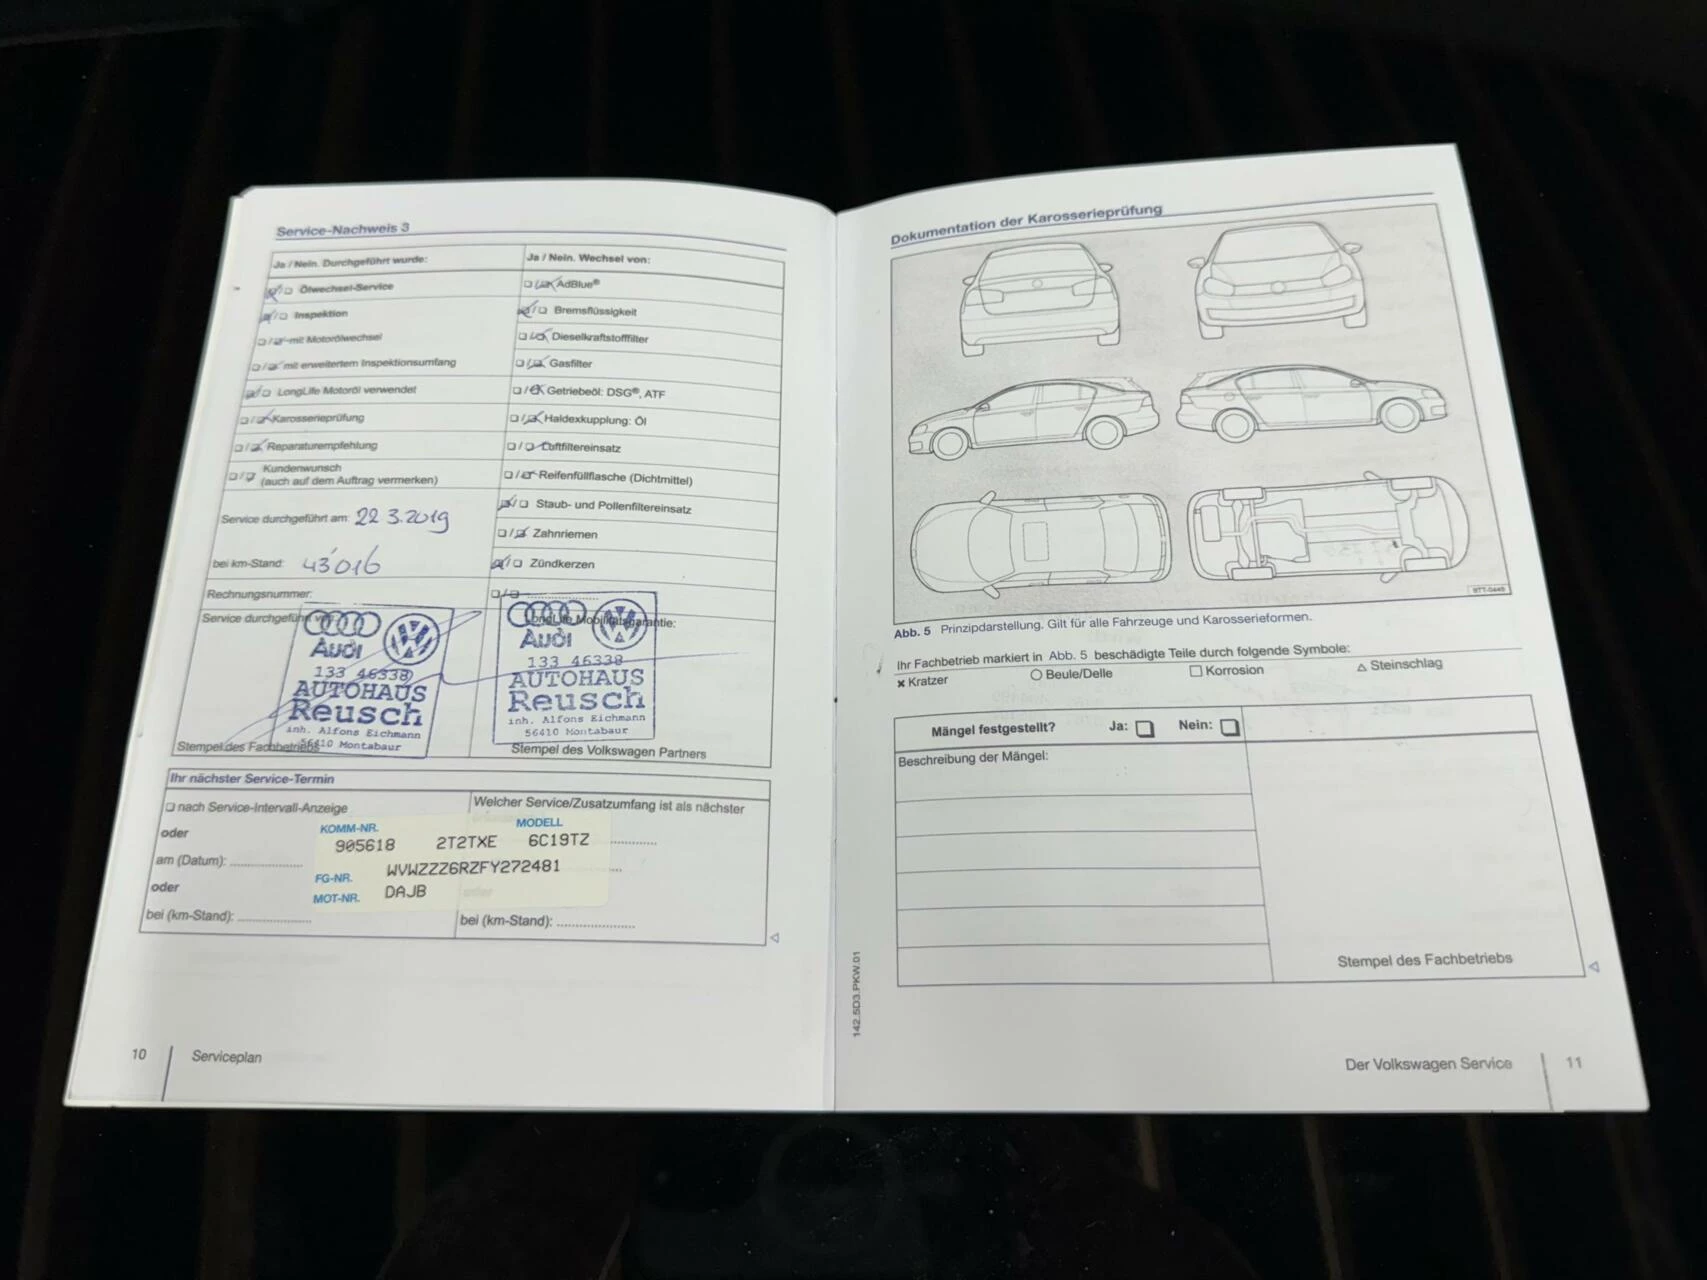 Service-Nachweis 3
Ja / Nein. Durchgeführt wurde:
Ölwechsel-Service
Inspektion
mit Motorölwechsel
mit erweitertem Inspektionsumfang
LongLife Motoröl verwendet
Karosserieprüfung
Reparaturempfehlung
Kundenwunsch
(auch auf dem Auftrag vermerken)
Service durchgeführt am: 22 3.2019
bei km-Stand: 43'016
Rechnungsnummer:
Service durchgeführt von:
Audi
133 46338
AUTOHAUS
Reusch
inh. Alfons Eichmann
56410 Montabaur
Stempel des Fachbetriebs
Ja / Nein. Wechsel von:
AdBlue®
Bremsflüssigkeit
Dieselkraftstofffilter
Gasfilter
Getriebeöl: DSG®, ATF
Haldexkupplung: Öl
Luftfiltereinsatz
Reifenfüllflasche (Dichtmittel)
Staub- und Pollenfiltereinsatz
Zahnriemen
Zündkerzen
LongLife Mobilitätsgarantie:
Audi
133 46338
AUTOHAUS
Reusch
inh. Alfons Eichmann
56410 Montabaur
Stempel des Volkswagen Partners
Ihr nächster Service-Termin
nach Service-Intervall-Anzeige
oder
am (Datum):
oder
bei (km-Stand):
Welcher Service/Zusatzumfang ist als nächster
KOMM-NR. MODELL
905618 2T2TXE 6C19TZ
FG-NR. WVWZZZ6RZFY272481
MOT-NR. DAJB
oder
bei (km-Stand):
10 Serviceplan
Dokumentation der Karosserieprüfung
BTT-0445
Abb. 5 Prinzipdarstellung. Gilt für alle Fahrzeuge und Karosserieformen.
Ihr Fachbetrieb markiert in Abb. 5 beschädigte Teile durch folgende Symbole:
× Kratzer ○ Beule/Delle □ Korrosion △ Steinschlag
Mängel festgestellt? Ja: Nein:
Beschreibung der Mängel:
Stempel des Fachbetriebs
142.5D3.PKW.01
Der Volkswagen Service 11